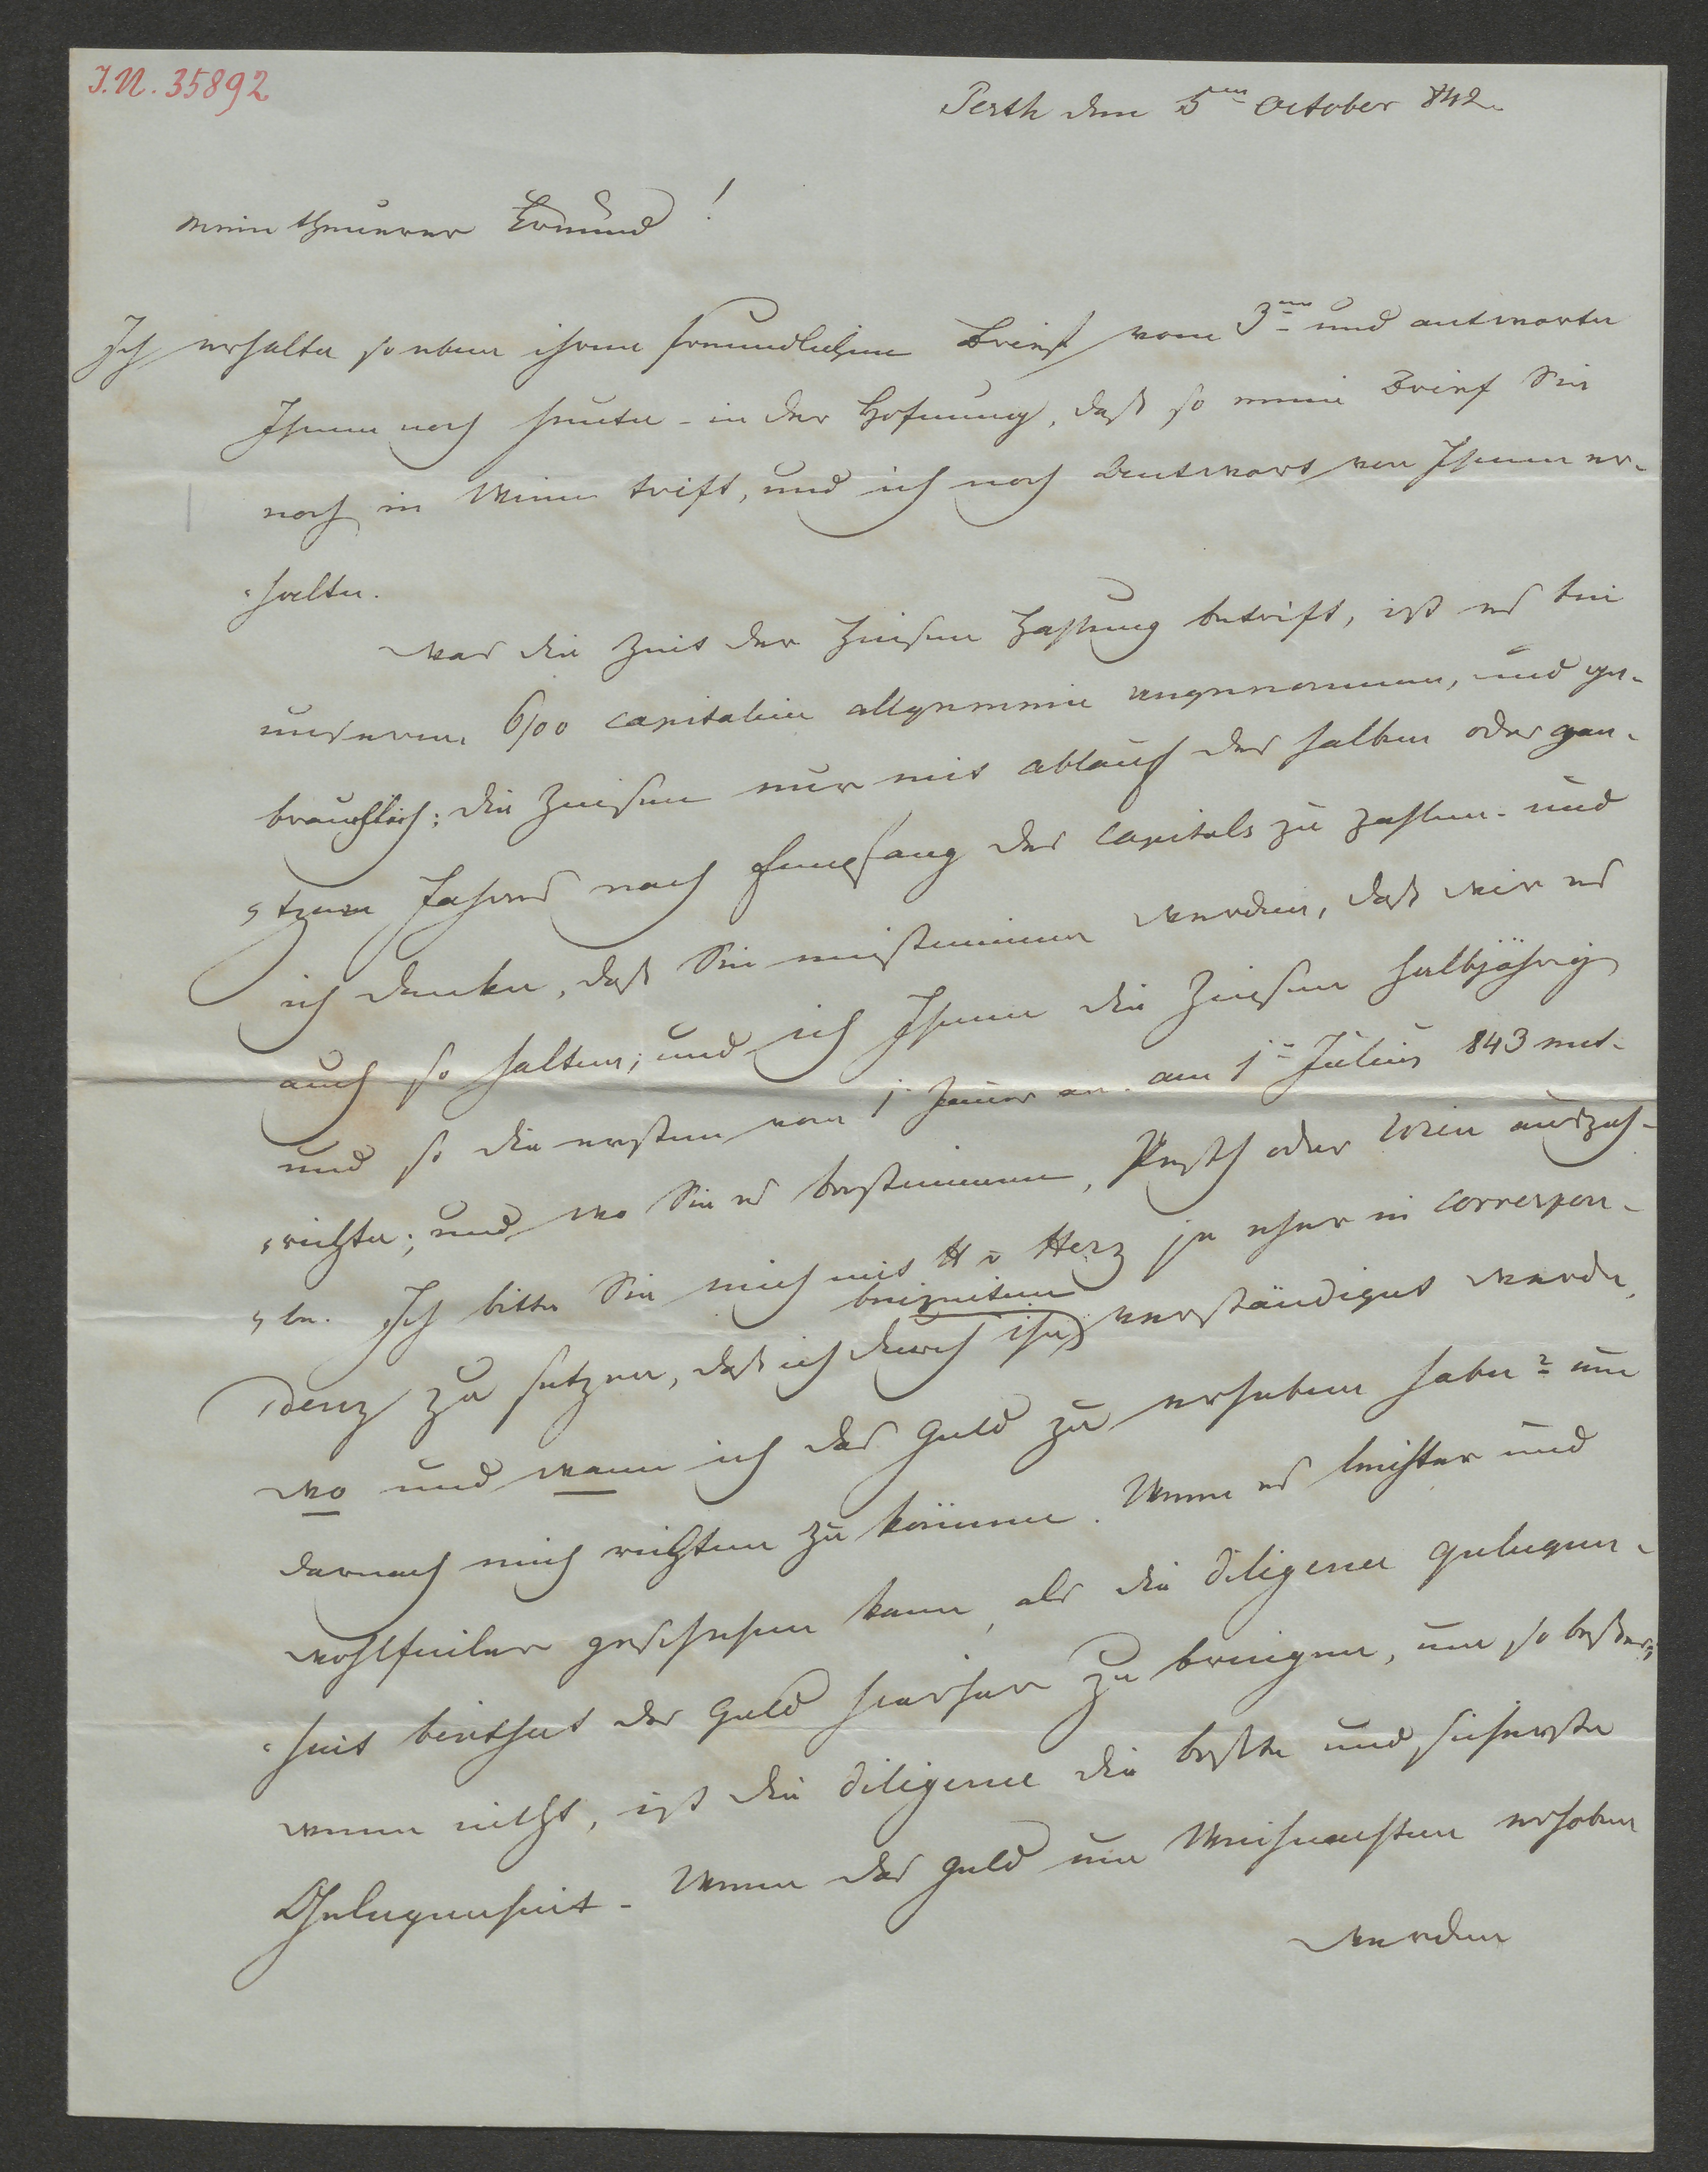 J.N. 35892
Pesth den 5ten October 842.
Mein theuerer Freund!
Ich erhalte so eben ihren freundlichen Brief vom 3ten und antworte
Ihnen noch heute - in der Hofnung, daß so mein Brief Sie
noch in Wien trift, und ich noch Antwort von Ihnen er-
halte.
Was die Zeit der Zinsen Zahlung betrift, ist es bei
unseren 6/00 Capitalien allgemein angenommen, und ge-
bräuchlich; die Zinsen nur mit Ablauf des halben oder gan-
tzen Jahres nach Empfang des Capitals zu zahlen - und
ich denke, daß Sie einstimmen werden, daß wir es
auch so halten; und ich Ihnen die Zinsen halbjährig
und so die ersten vom 1 Jäner an - am 1ten Julius 843 ent-
richte; und wo Sie es bestimmen, Pesth oder Wien auszah-
le. Ich bitte Sie mich mit H v Herz je eher in Correspon-
denz zu setzen, daß ich durch ihn beizeiten verständiget werde,
wo und wann ich das Geld zu erheben habe? um
darnach mich richten zu können. Wenn es leichter und
wohlfeiler geschehen kann, als die Diligence Gelegen-
heit biethet das Geld hierher zu bringen, um so besser;
wenn nicht, ist die Diligence die beste und sicherste
Gelegenheit - Wenn das Geld um Weihnachten erhoben
werden